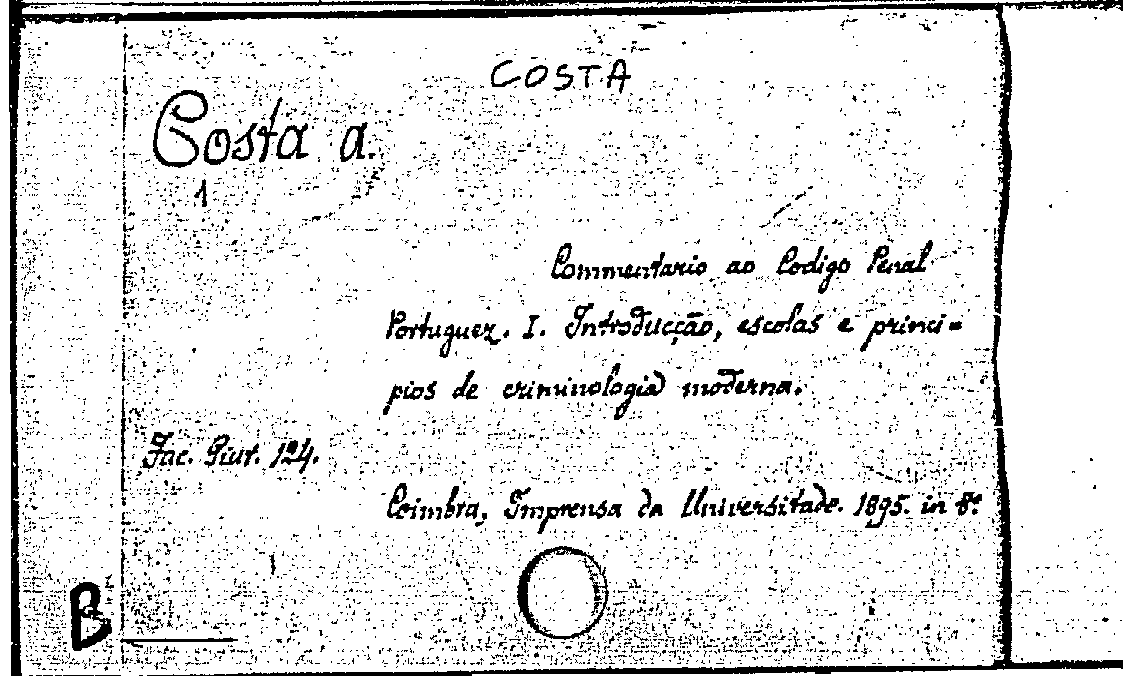 COSTA
Costa a.
1
Commentario ao Codigo Penal
Portuguez. I. Introducção, escolas e princi=
pios de criminologia moderna.
Fac. Giur. 124.
Coimbra, Imprensa da Universitade. 1895. in 8º
B